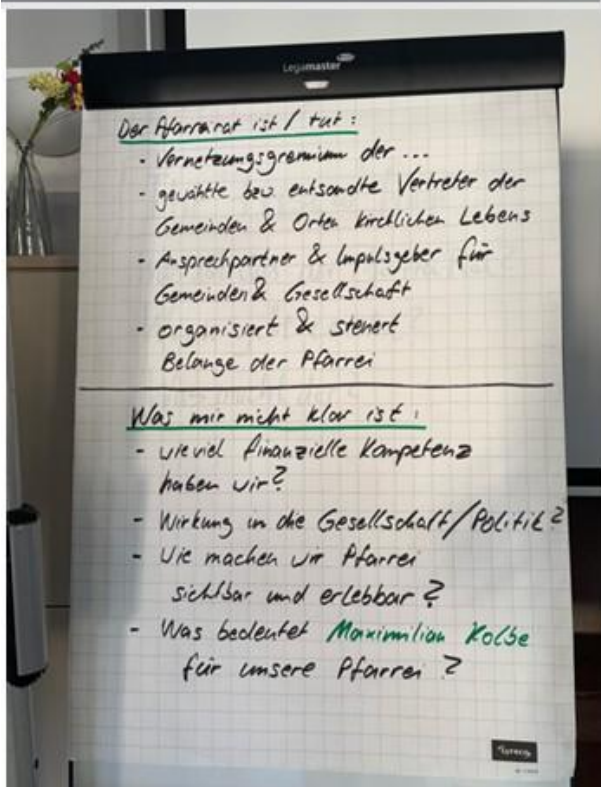 Legamaster
Der Pfarreirat ist / tut :
- Vernetzungsgremium der ...
- gewählte bzw. entsandte Vertreter der
Gemeinden & Orten kirchlichen Lebens
- Ansprechpartner & Impulsgeber für
Gemeinden & Gesellschaft
- organisiert & steuert
Belange der Pfarrei
Was mir nicht klar ist :
- wieviel finanzielle Kompetenz
haben wir?
- Wirkung in die Gesellschaft/Politik?
- Wie machen wir Pfarrei
sichtbar und erlebbar?
- Was bedeutet Maximilian Kolbe
für unsere Pfarrei?